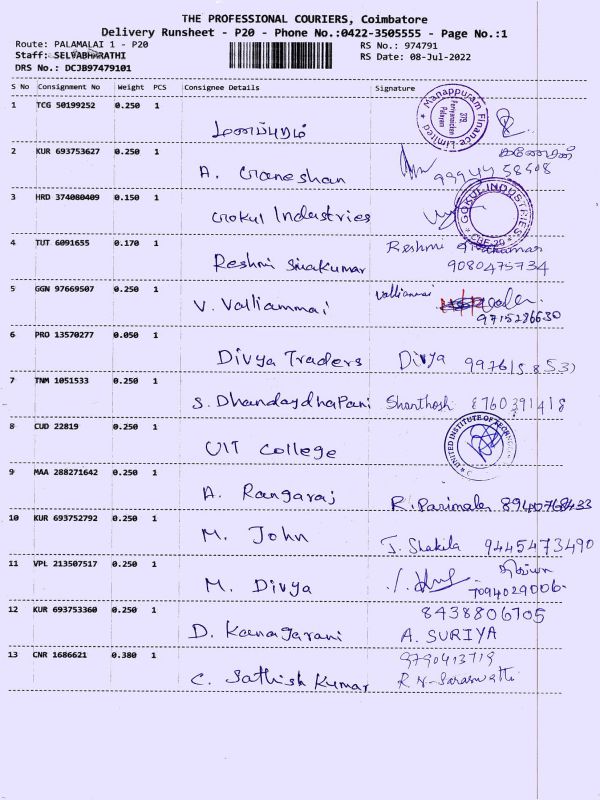 THE PROFESSIONAL COURIERS, Coimbatore
Delivery Runsheet - P20 - Phone No.:0422-3505555 - Page No.:1
Route: PALAMALAI 1 - P20
RS No.: 974791
Staff: SELVABHARATHI
RS Date: 08-Jul-2022
DRS No.: DCJB97479101
S No Consignment No Weight PCS Consignee Details Signature
1 TCG 50199252 0.250 1 மணப்புரம் Manappuram Finance Limited
2 KUR 693753627 0.250 1 A. Ganeshan
3 HRD 374080409 0.150 1 Gokul Industries GOKUL INDUSTRIES
4 TUT 6091655 0.170 1 Reshmi Sivakumar Reshmi
9080475734
5 GGN 97669507 0.250 1 V. Valliammai Valliammai
9715286630
6 PRO 13570277 0.050 1 Divya Traders Divya
7 TNM 1051533 0.250 1 S. Dhandaydhapani Shanthosh 8760391418
8 CUD 22819 0.250 1 UIT College UNITED INSTITUTE OF
9 MAA 288271642 0.250 1 A. Rangaraj R. Parimala
10 KUR 693752792 0.250 1 M. John J. Shakila 9445473490
11 VPL 213507517 0.250 1 M. Divya
7094029006
12 KUR 693753360 0.250 1 D. Kanagarani 8438806705
A. SURIYA
13 CNR 1686621 0.380 1 C. Sathish Kumar 9790413719
R N-Saraswathi